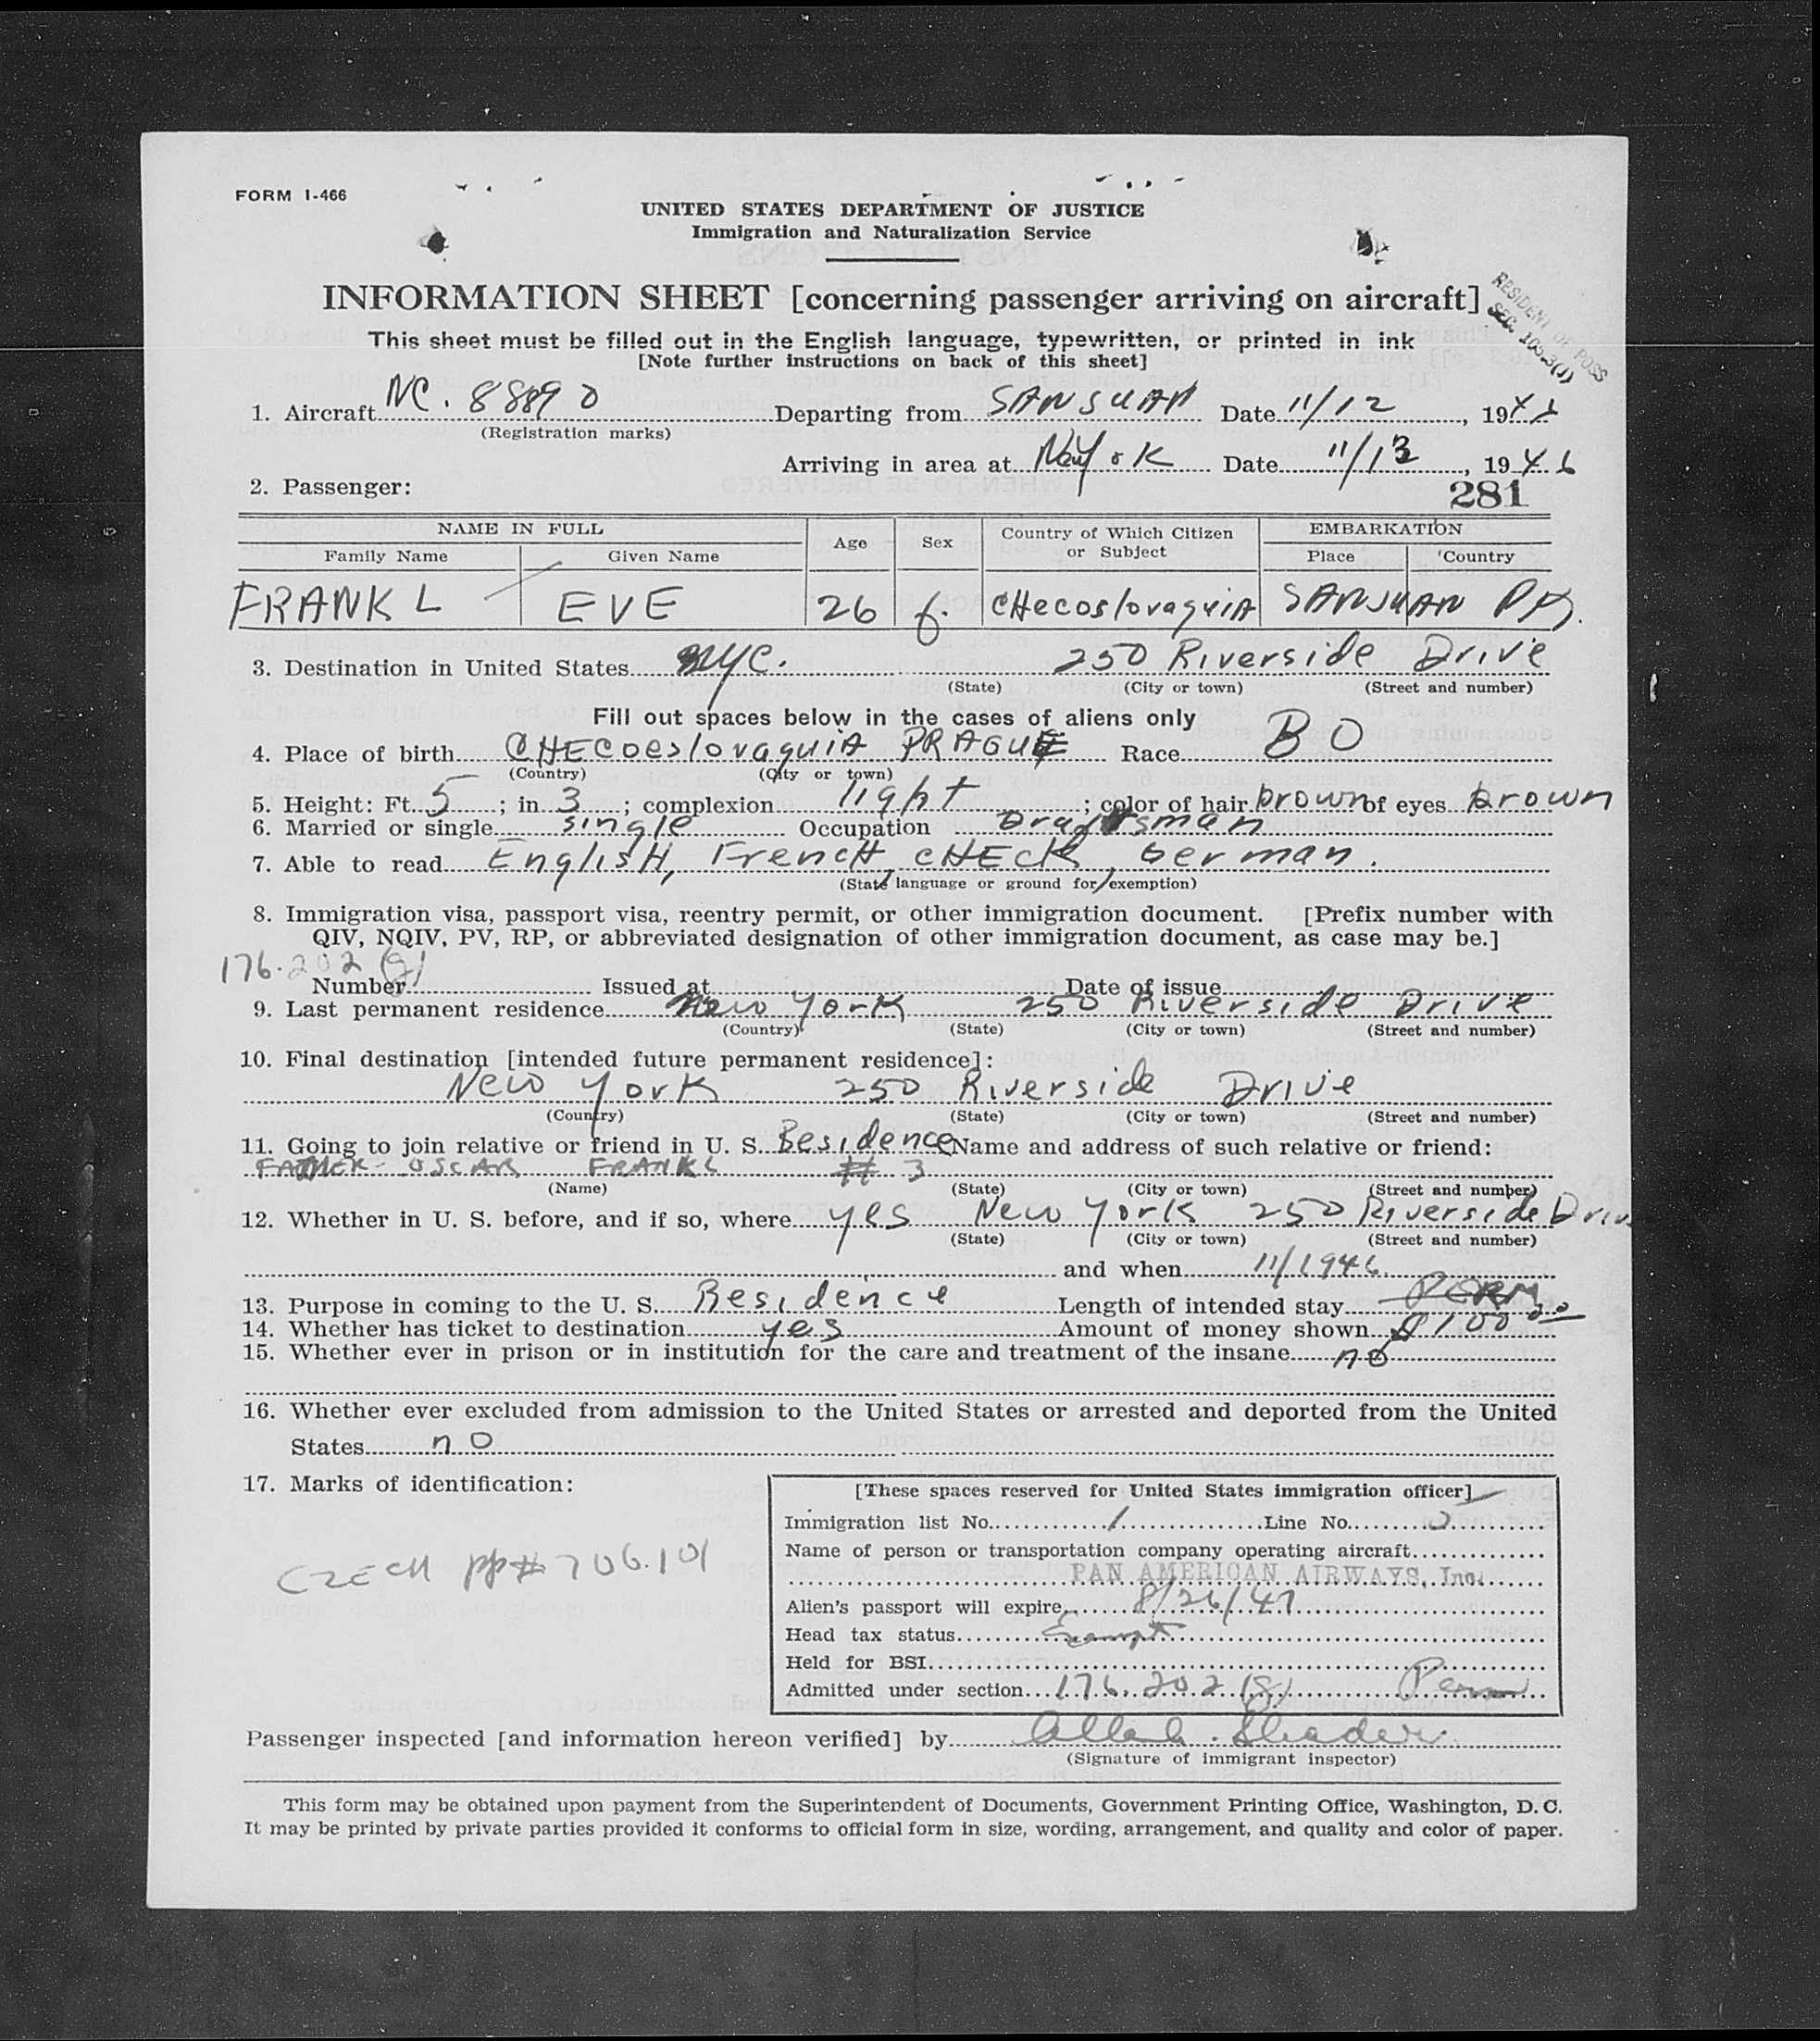 FORM I-466
UNITED STATES DEPARTMENT OF JUSTICE
Immigration and Naturalization Service
INFORMATION SHEET [concerning passenger arriving on aircraft]
RESIDENT OF POSS
SEC. 105.3(J)
This sheet must be filled out in the English language, typewritten, or printed in ink
[Note further instructions on back of this sheet]
1. Aircraft NC. 88890 Departing from SANJUAN Date 11/12, 1946
(Registration marks)
Arriving in area at NewYork Date 11/13, 1946
2. Passenger: 281
NAME IN FULL Age Sex Country of Which Citizen or Subject EMBARKATION
Family Name Given Name Place Country
FRANKL EVE 26 f. CHecoslovaquiA SANJUAN
3. Destination in United States NYC. 250 Riverside Drive
(State) (City or town) (Street and number)
Fill out spaces below in the cases of aliens only
4. Place of birth CHECoeslovaquiA PRAGUE Race BO
(Country) (City or town)
5. Height: Ft. 5; in 3; complexion light; color of hair brown of eyes brown
6. Married or single single Occupation Draftsman
7. Able to read EnglisH, FrencH, cHEck, German.
(State language or ground for exemption)
8. Immigration visa, passport visa, reentry permit, or other immigration document. [Prefix number with
QIV, NQIV, PV, RP, or abbreviated designation of other immigration document, as case may be.]
176.202 (g)
Number Issued at Date of issue
9. Last permanent residence New York 250 Riverside Drive
(Country) (State) (City or town) (Street and number)
10. Final destination [intended future permanent residence]:
New York 250 Riverside Drive
(Country) (State) (City or town) (Street and number)
11. Going to join relative or friend in U. S. Residence Name and address of such relative or friend:
FATHER - OSCAR FRANKL # 3
(Name) (State) (City or town) (Street and number)
12. Whether in U. S. before, and if so, where yes New York 250 Riverside Drive
(State) (City or town) (Street and number)
and when 11/1946
13. Purpose in coming to the U. S. Residence Length of intended stay PERM
14. Whether has ticket to destination yes Amount of money shown $100.00
15. Whether ever in prison or in institution for the care and treatment of the insane no
16. Whether ever excluded from admission to the United States or arrested and deported from the United
States no
17. Marks of identification:
CZECH PP# 706.101
[These spaces reserved for United States immigration officer]
Immigration list No. 1 Line No.
Name of person or transportation company operating aircraft
PAN AMERICAN AIRWAYS, Inc.
Alien's passport will expire 8/26/47
Head tax status Exempt
Held for BSI
Admitted under section 176.202 (g) Perm
Passenger inspected [and information hereon verified] by
(Signature of immigrant inspector)
This form may be obtained upon payment from the Superintendent of Documents, Government Printing Office, Washington, D. C.
It may be printed by private parties provided it conforms to official form in size, wording, arrangement, and quality and color of paper.